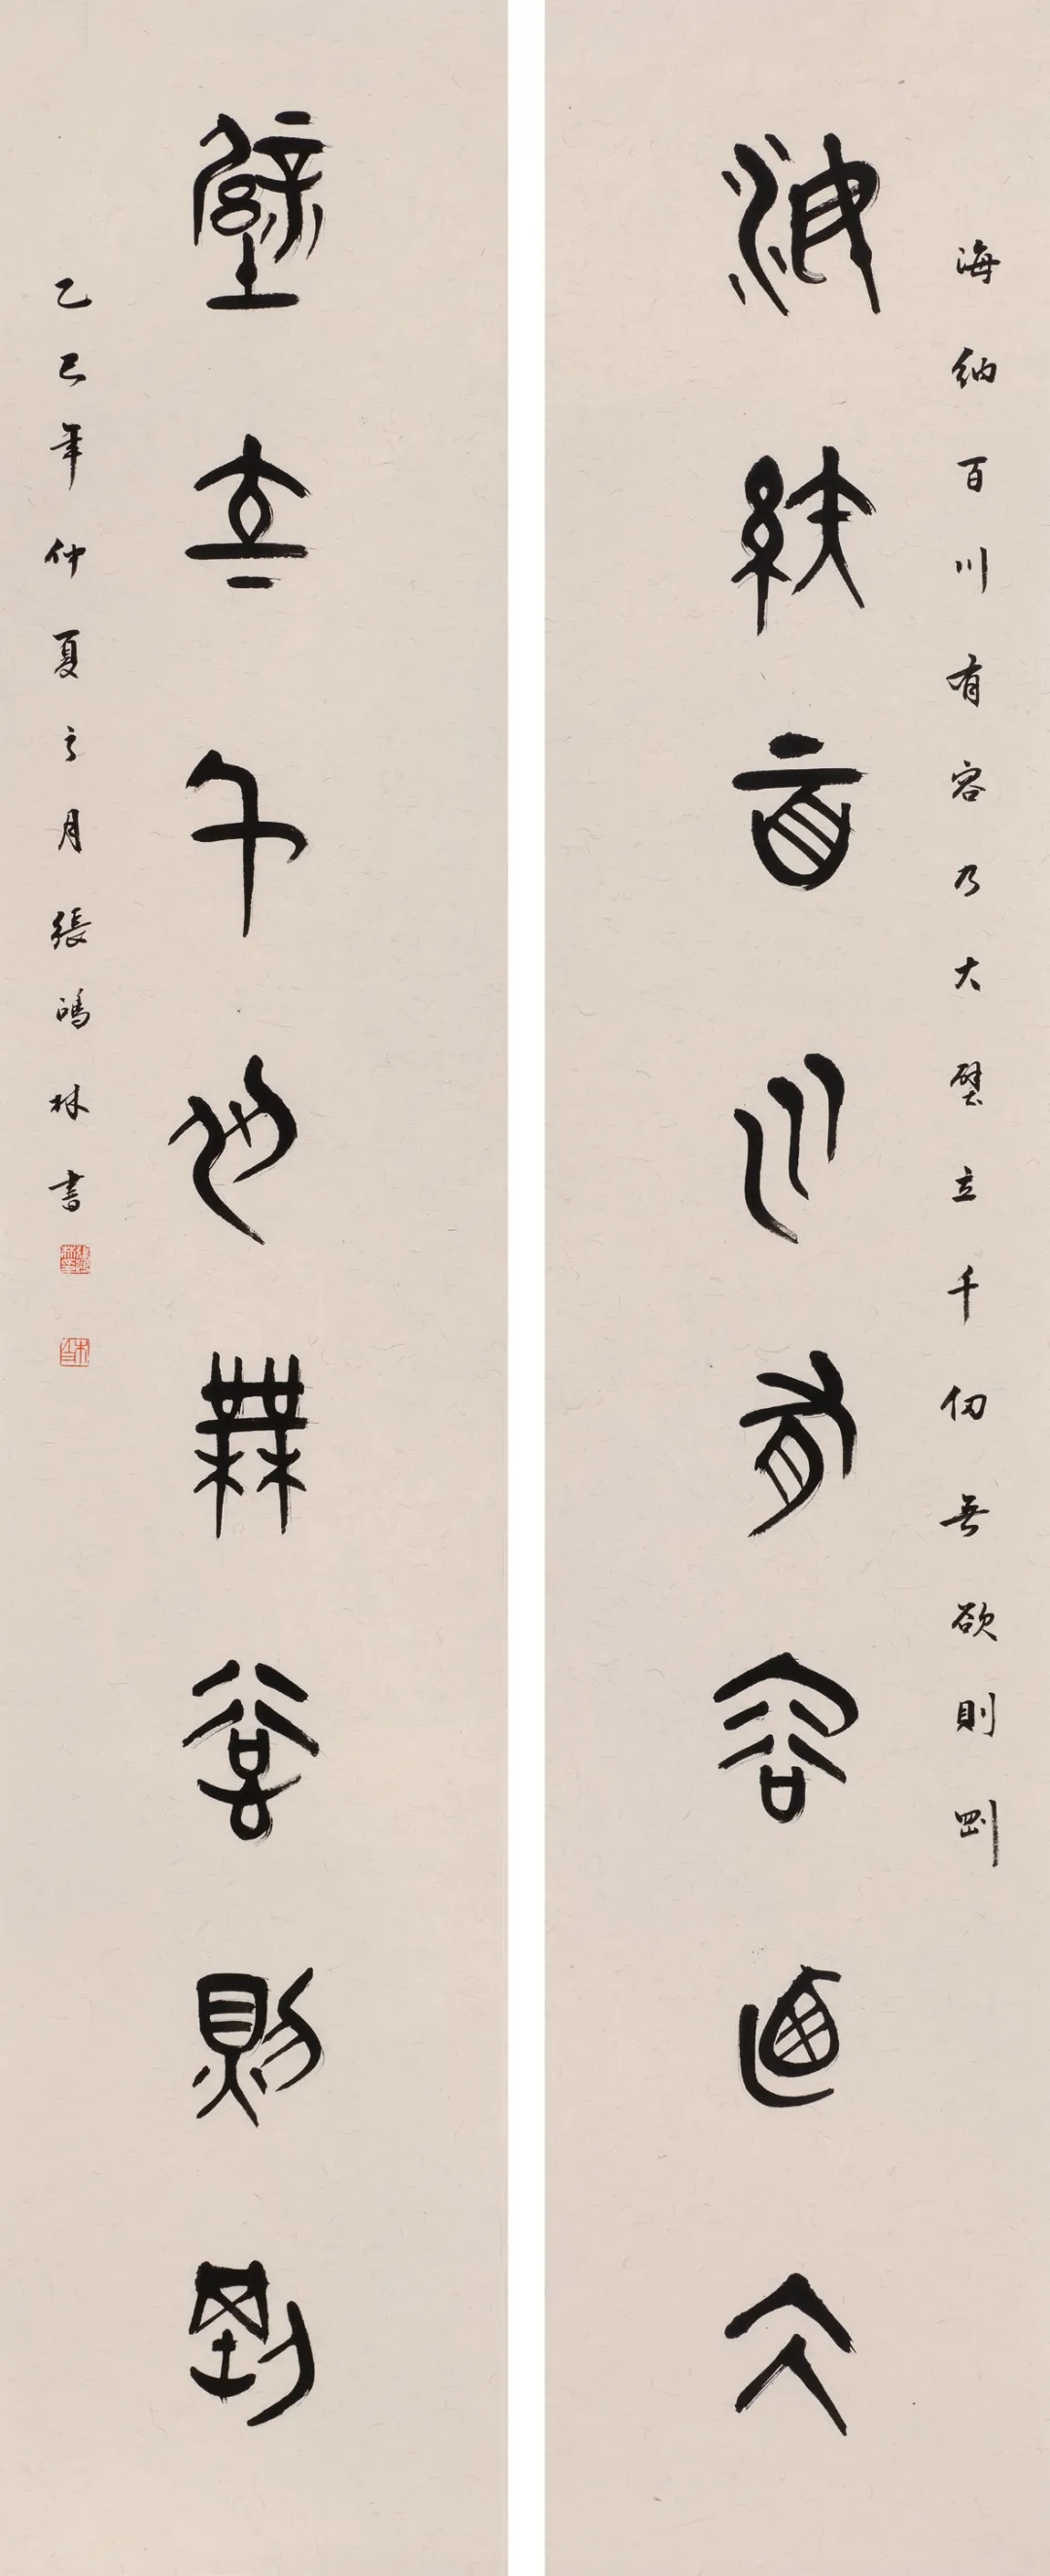 海納百川有容乃大壁立千仞無欲則剛
海納百川有容乃大
壁立千仞無欲則剛
乙巳年仲夏之月張鴻林書